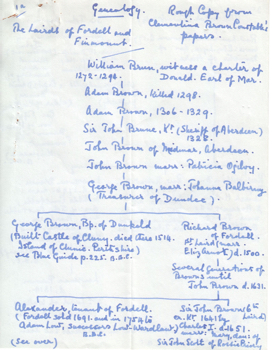 Genealogy. Rough Copy from
Clementina Brown Constable's
papers.
The Lairds of Fordell and
Finmount.
William Brun, witness a charter of
1272-1296. Donald. Earl of Mar.
Adam Brown, killed 1298.
Adam Brown, 1306-1329.
Sir John Brune, Kt. (Sheriff of Aberdeen)
1328.
John Brown of Midmar, Aberdeen.
John Brown marr: Patricia Ogilvy.
George Brown, marr: Johanna Balbirny
(Treasurer of Dundee).
George Brown, Bp. of Dunkeld
(Built Castle of Cluny. died 1514.
Island of Clunie. Perthshire)
see Blue Guide p.225.
Richard Brown
of Fordell.
1st Laird (marr:
Eliz.) d. 1500.
Several generations of
Browns until
John Brown d. 1631.
Alexander, tenant of Fordell.
(Fordell sold 1691. and in 1754 to
Adam Low, successors Low.
(See over)
Sir John Brown 6th
Laird)
Charles I. d. 1651.
marr: Mary, dau: of
Sir John Scott of Rossie